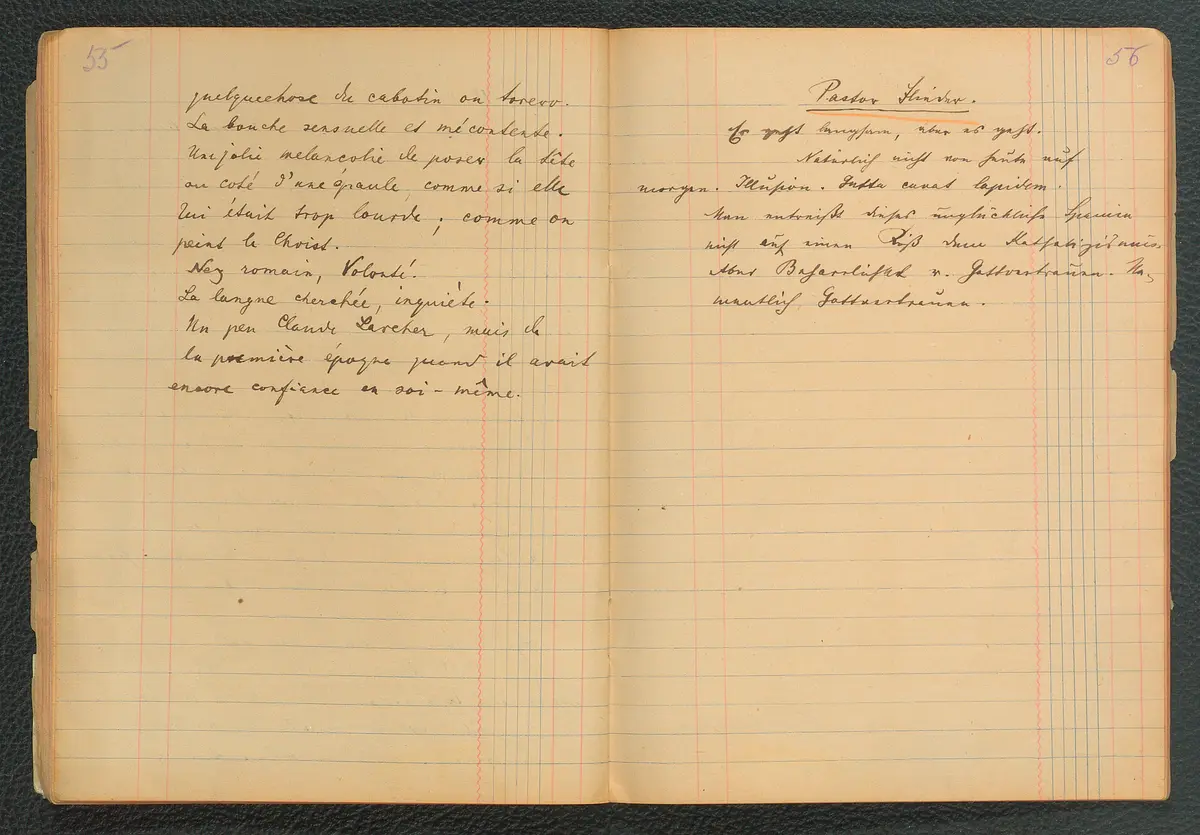 55
quelquechose du cabotin ou torero.
La bouche sensuelle et mécontente.
Une jolie mélancolie de poser la tête
au coté d'une épaule, comme si elle
lui était trop lourde; comme on
peint le Christ.
Nez romain, Volonté.
La langue cherchée, inquiéte.
Un peu Claude Larcher, mais de
la première époque quand il avait
encore confiance en soi-même.
56
Pastor Flieder.
Es geht langsam, aber es geht.
Natürlich nicht von heute auf
morgen. Illusion. Gutta cavat lapidem.
Man entreißt dieses unglückliche Spanien
nicht auf einen Riß dem Katholizismus.
Aber Beharrlichkt u. Gottvertrauen. Na-
mentlich Gottvertrauen.